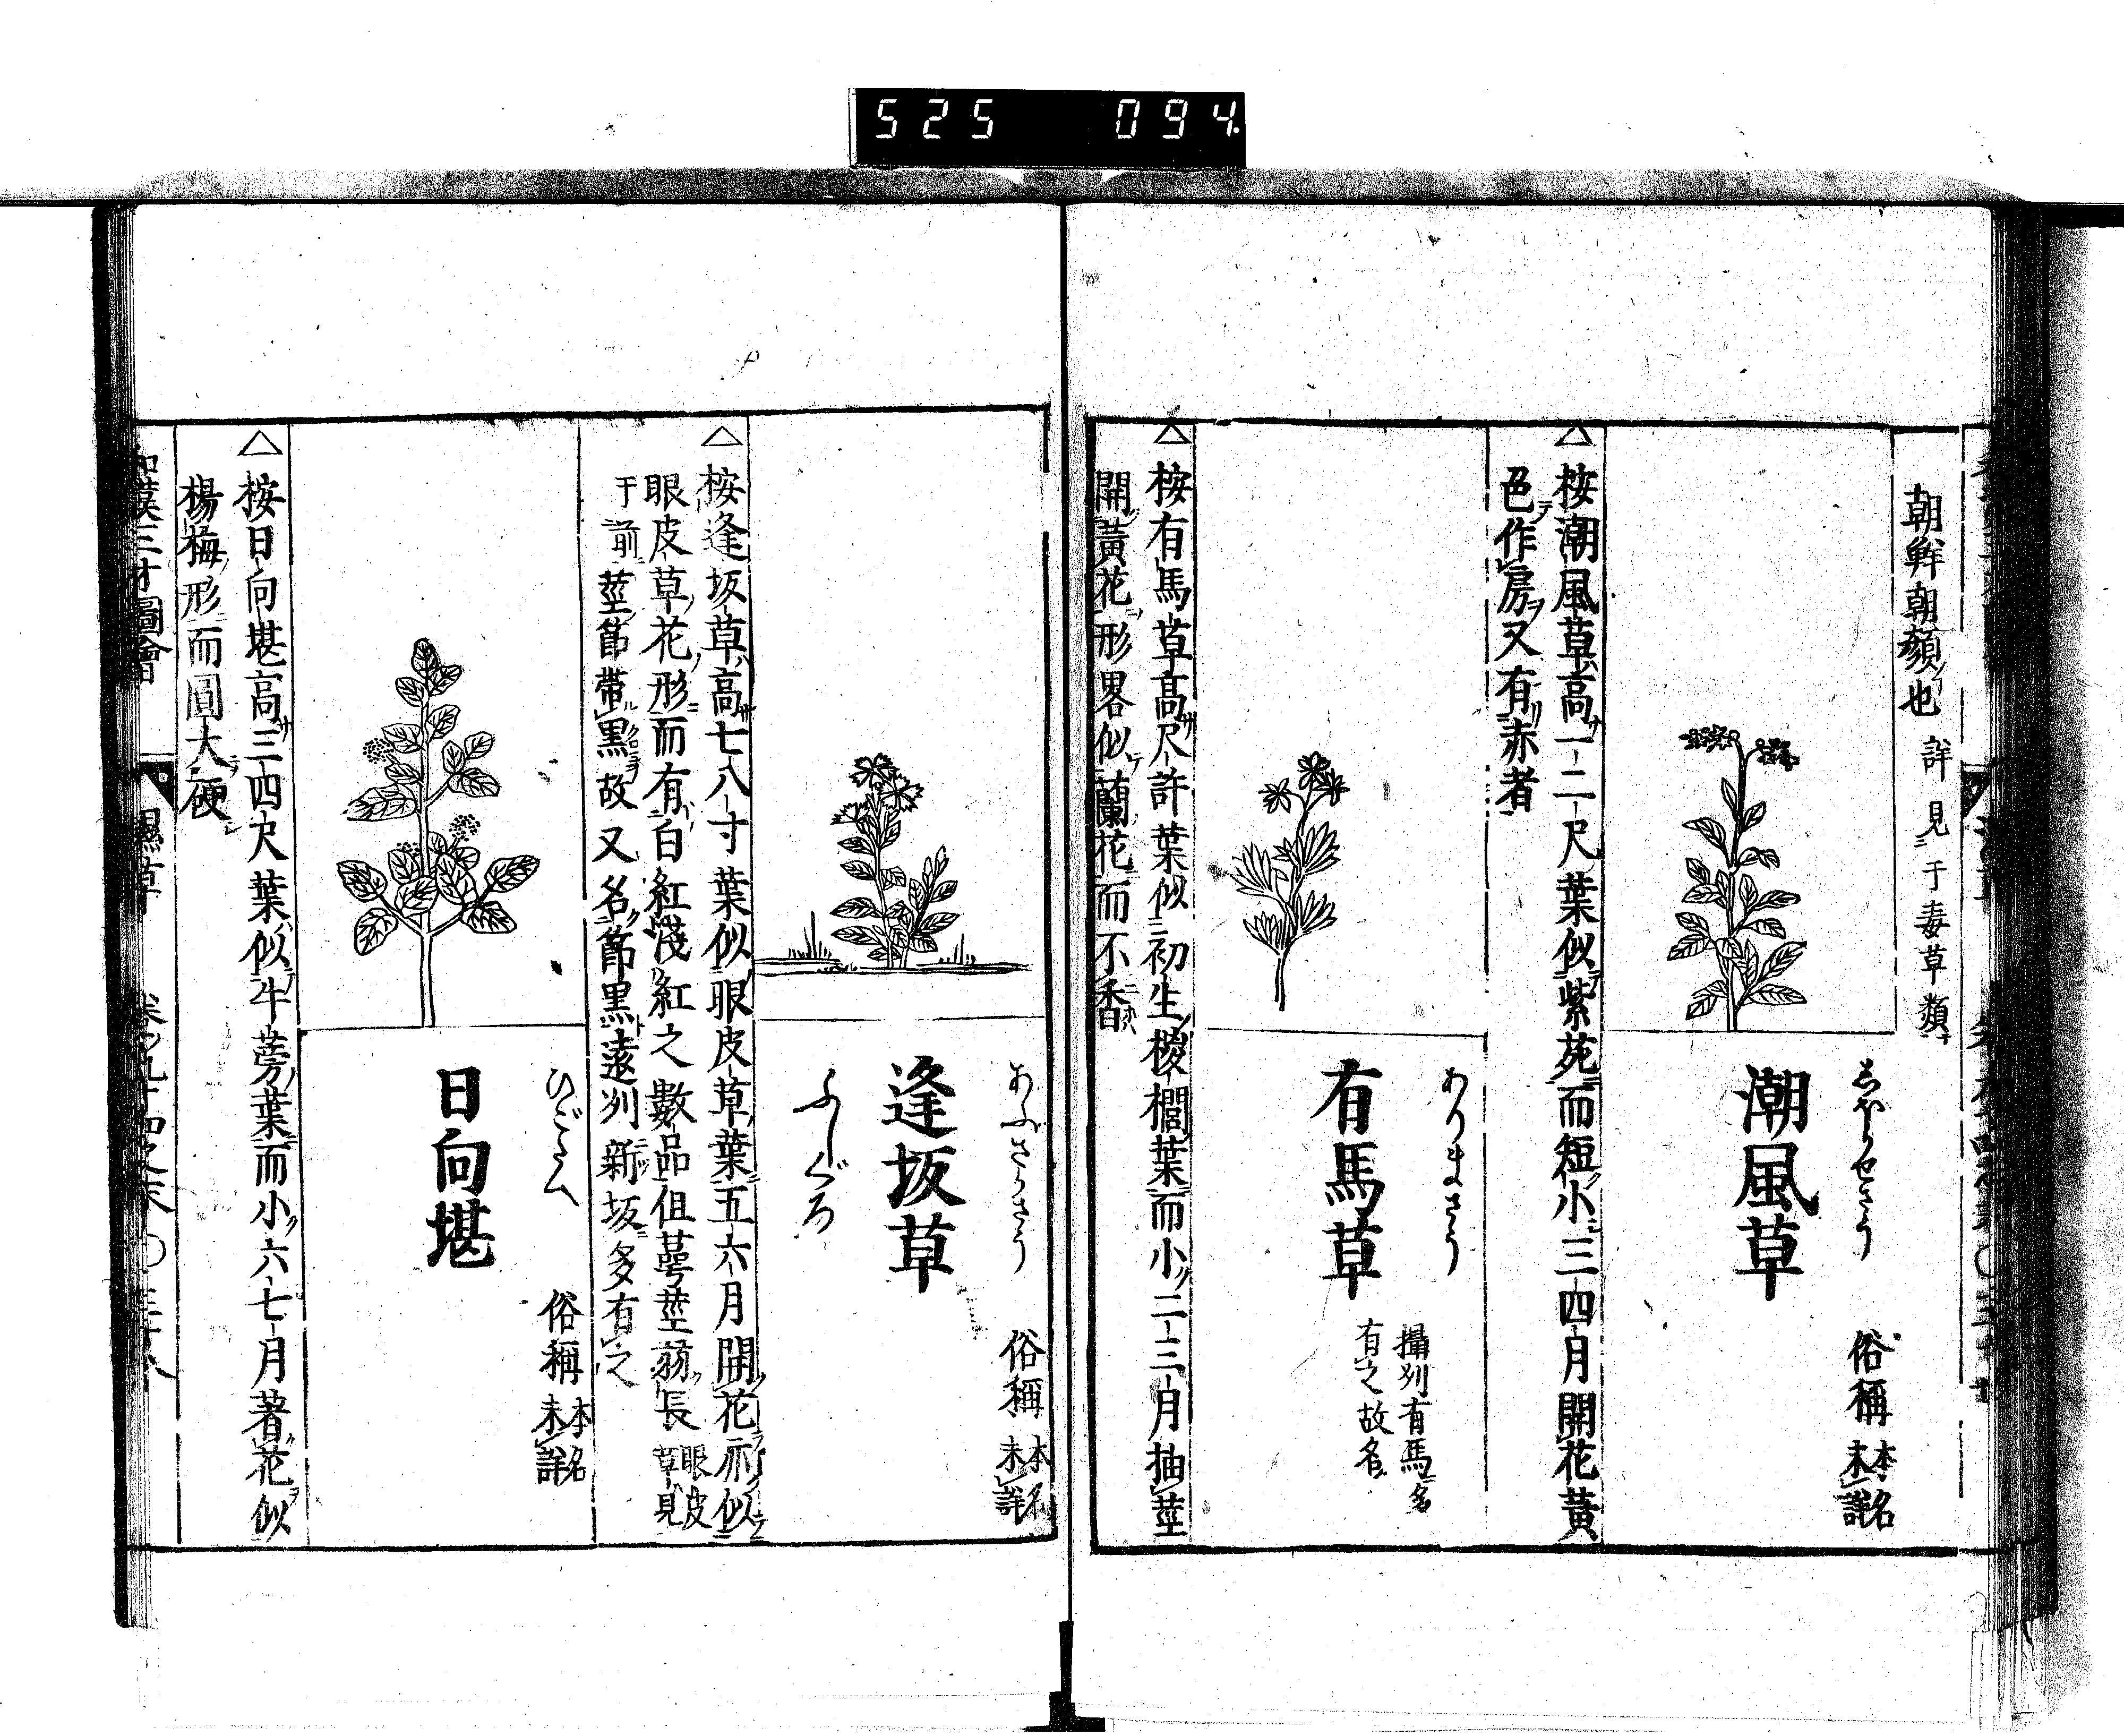 525 094
朝鮮朝顏也 詳見于毒草類
しほかせさう
俗稱 本名未詳
潮風草
△按潮風草高一二尺葉似紫苑而短小三四月開花黃
色作房又有赤者
ありまさう
有馬草
攝州有馬多
有之故名
△按有馬草高尺許葉似初生椶櫚葉而小二三月抽莖
開黃花形畧似蘭花而不香
あふさかさう
俗稱 本名未詳
逢坂草
ふしぐろ
△按逢坂草高七八寸葉似眼皮草葉五六月開花亦似
眼皮草花形而有白紅淺紅之數品但萼莖蒴長 眼皮草見
于前 莖節帶黑故又名節黑遠州新坂多有之
ひごたい
俗稱 本名未詳
日向堪
△按日向堪高三四尺葉似牛蒡葉而小六七月著花似
楊梅形而圓大硬
和漢三才圖會 濕草 卷之九十四之末 〇 三十八